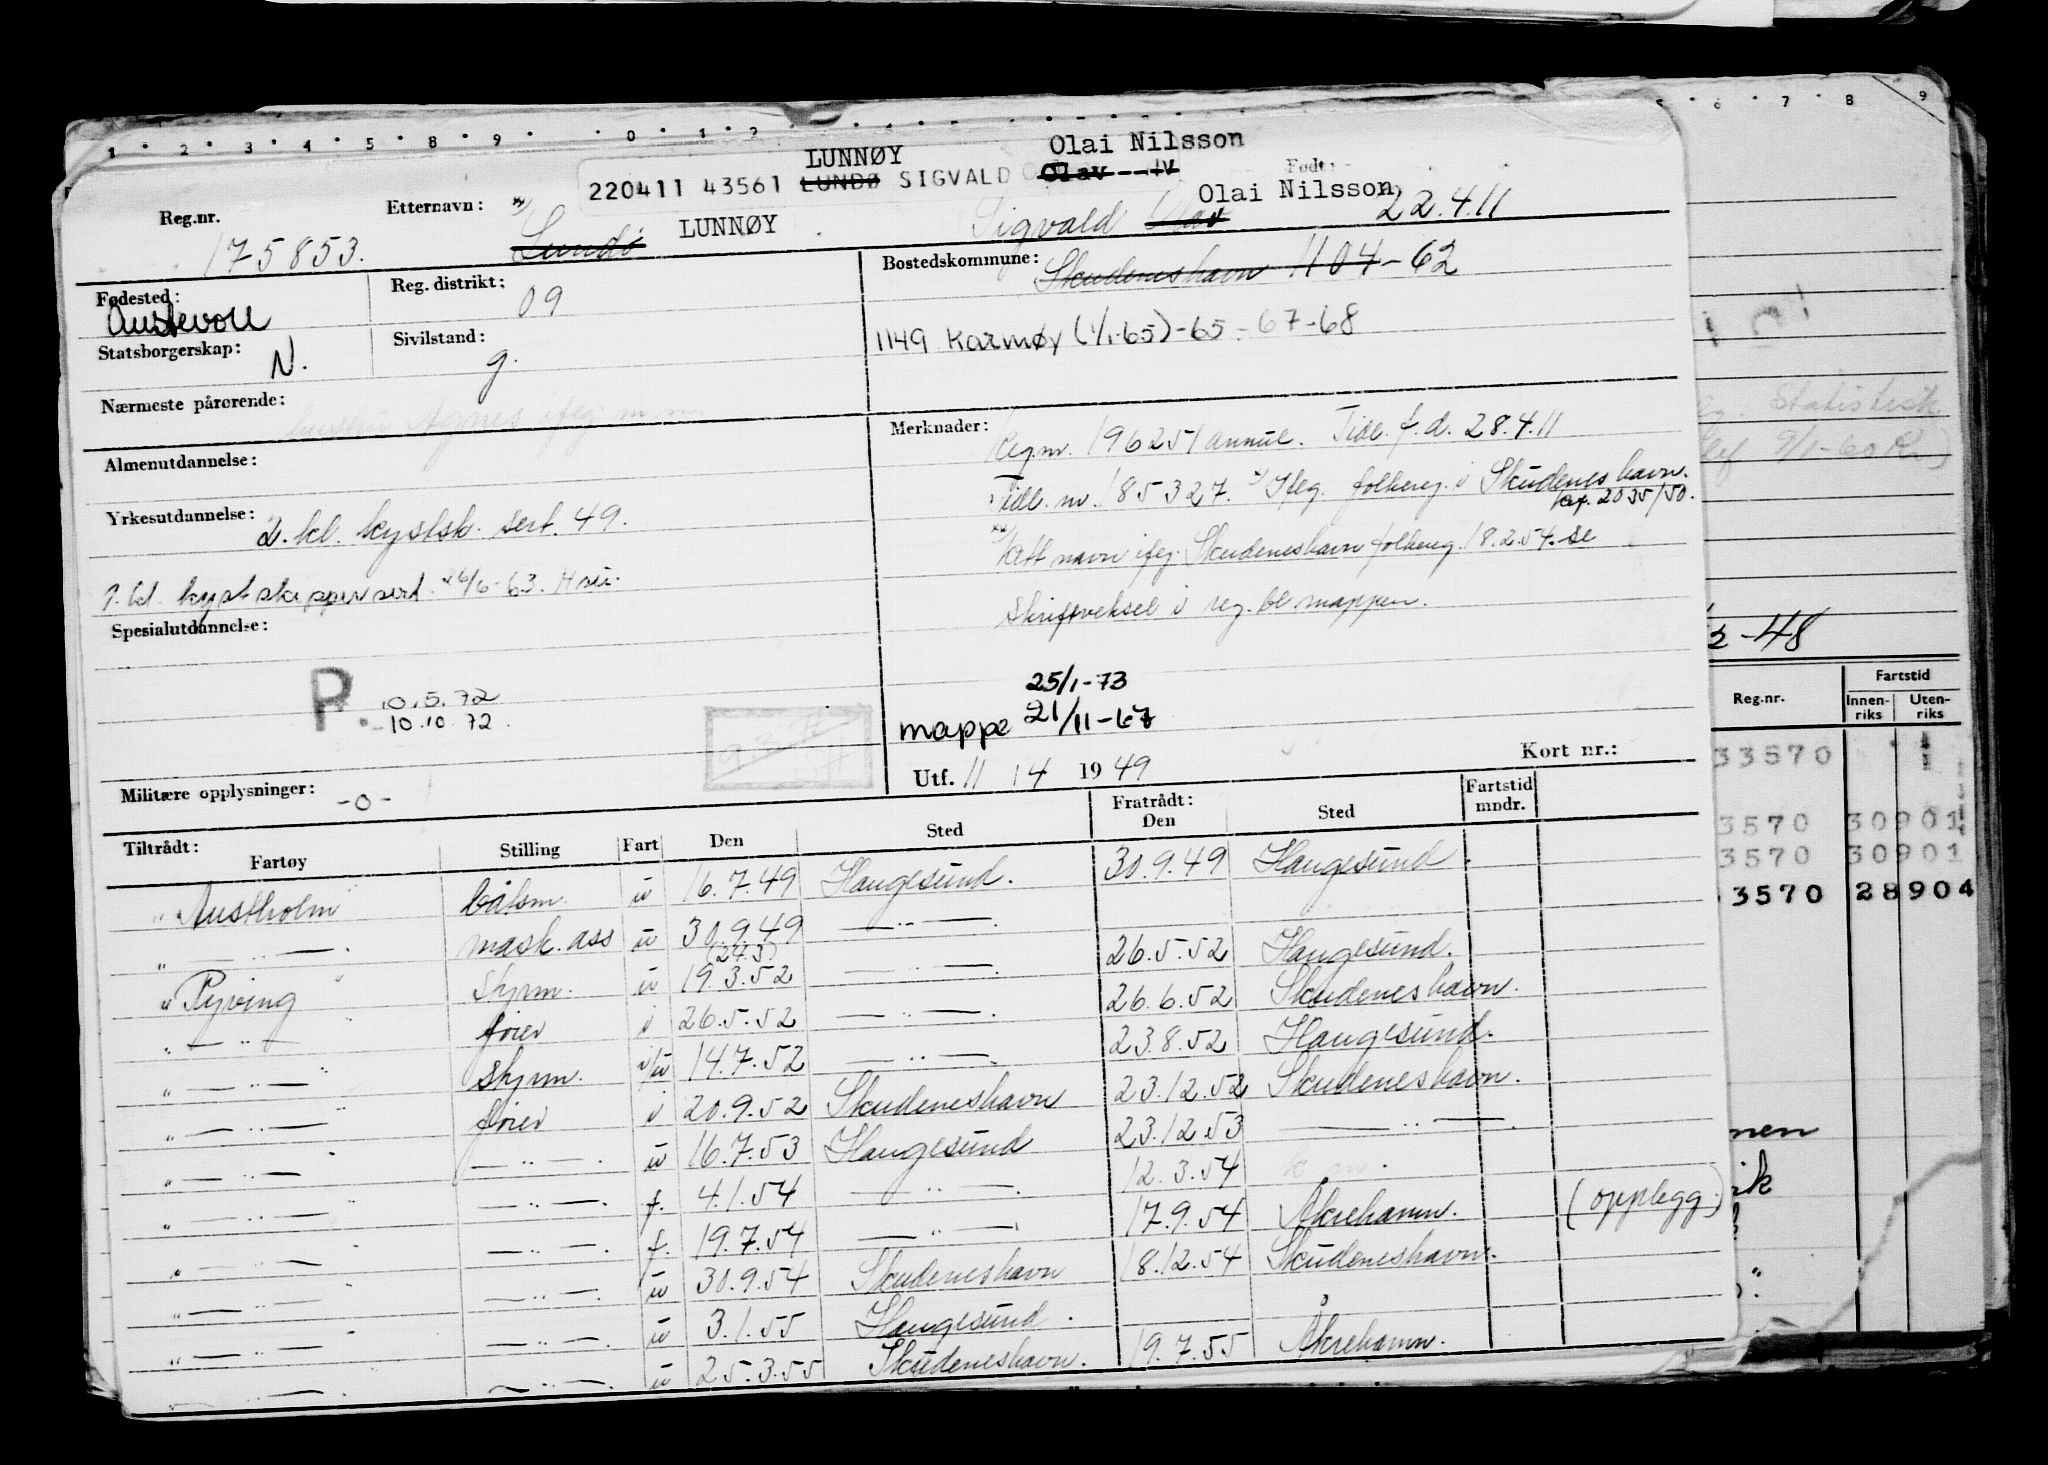 1 2 3 4 5 8 9 0 1 2
Olai Nilsson
LUNNØY
220411 43561 LUNDØ SIGVALD Olav
Født:
Olai Nilsson
Reg.nr. 175853.
Etternavn: Lundø LUNNØY
Sigvald Olav 22.4.11
Fødested: Austevoll
Reg. distrikt: 09
Bostedskommune: Skudeneshavn 1104-62
1149 Karmøy (1/1-65)-65-67-68
Statsborgerskap: N.
Sivilstand: g.
Nærmeste pårørende: Agnes
Merknader: Reg.nr. 196251 annul. Tidl. f.d. 28.4.11
Tidl. nr. 185327. Ifleg. folkereg. i Skudeneshavn.
2035/50.
Almenutdannelse:
Yrkesutdannelse: 2. kl. kystsk. sert. 49.
Rett navn ifleg. Skudeneshavn folkereg. 18.2.54. se
skriftveksel i reg. bl mappen.
1. kl. kystskippersert. 26/6-63. H
Spesialutdannelse:
P. 10.5.72
-10.10.72.
25/1-73
mappe 21/11-67
Utf. 11 / 4 1949
Kort nr.:
Militære opplysninger: -0-
Tiltrådt: Fartøy Stilling Fart Den Sted Fratrådt: Den Sted Fartstid mndr.
" Austholm båtsm. u 16.7.49 Haugesund. 30.9.49 Haugesund.
" — " — . mask. ass u 30.9.49 — " —
(24.3)
" Ryving " skjrm. u 19.3.52 — " — . 26.5.52 Haugesund.
" — " — fører i 26.5.52 — " — . 26.6.52 Skudeneshavn.
" — " — skjrm. i/u 14.7.52 — " — . 23.8.52 Haugesund.
" — " — fører i 20.9.52 Skudeneshavn 23.12.52 Skudeneshavn.
" — " — — " — . u 16.7.53 Haugesund 23.12.53 — " — .
" — " — — " — . f. 4.1.54 — " — . 12.3.54
" — " — — " — . f. 19.7.54 — " — 17.9.54 Åkrehamn. (opplegg)
" — " — — " — . u 30.9.54 Skudeneshavn 18.12.54 Skudeneshavn.
" — " — — " — . u 3.1.55 Haugesund.
" — " — . — " — . u 25.3.55 Skudeneshavn. 19.7.55 Åkrehamn.
6 7 8 9
Statistisk
9/1-60
2-48
Reg.nr. Fartstid
Innenriks Utenriks
33570
3570 30901
3570 30901
3570 28904